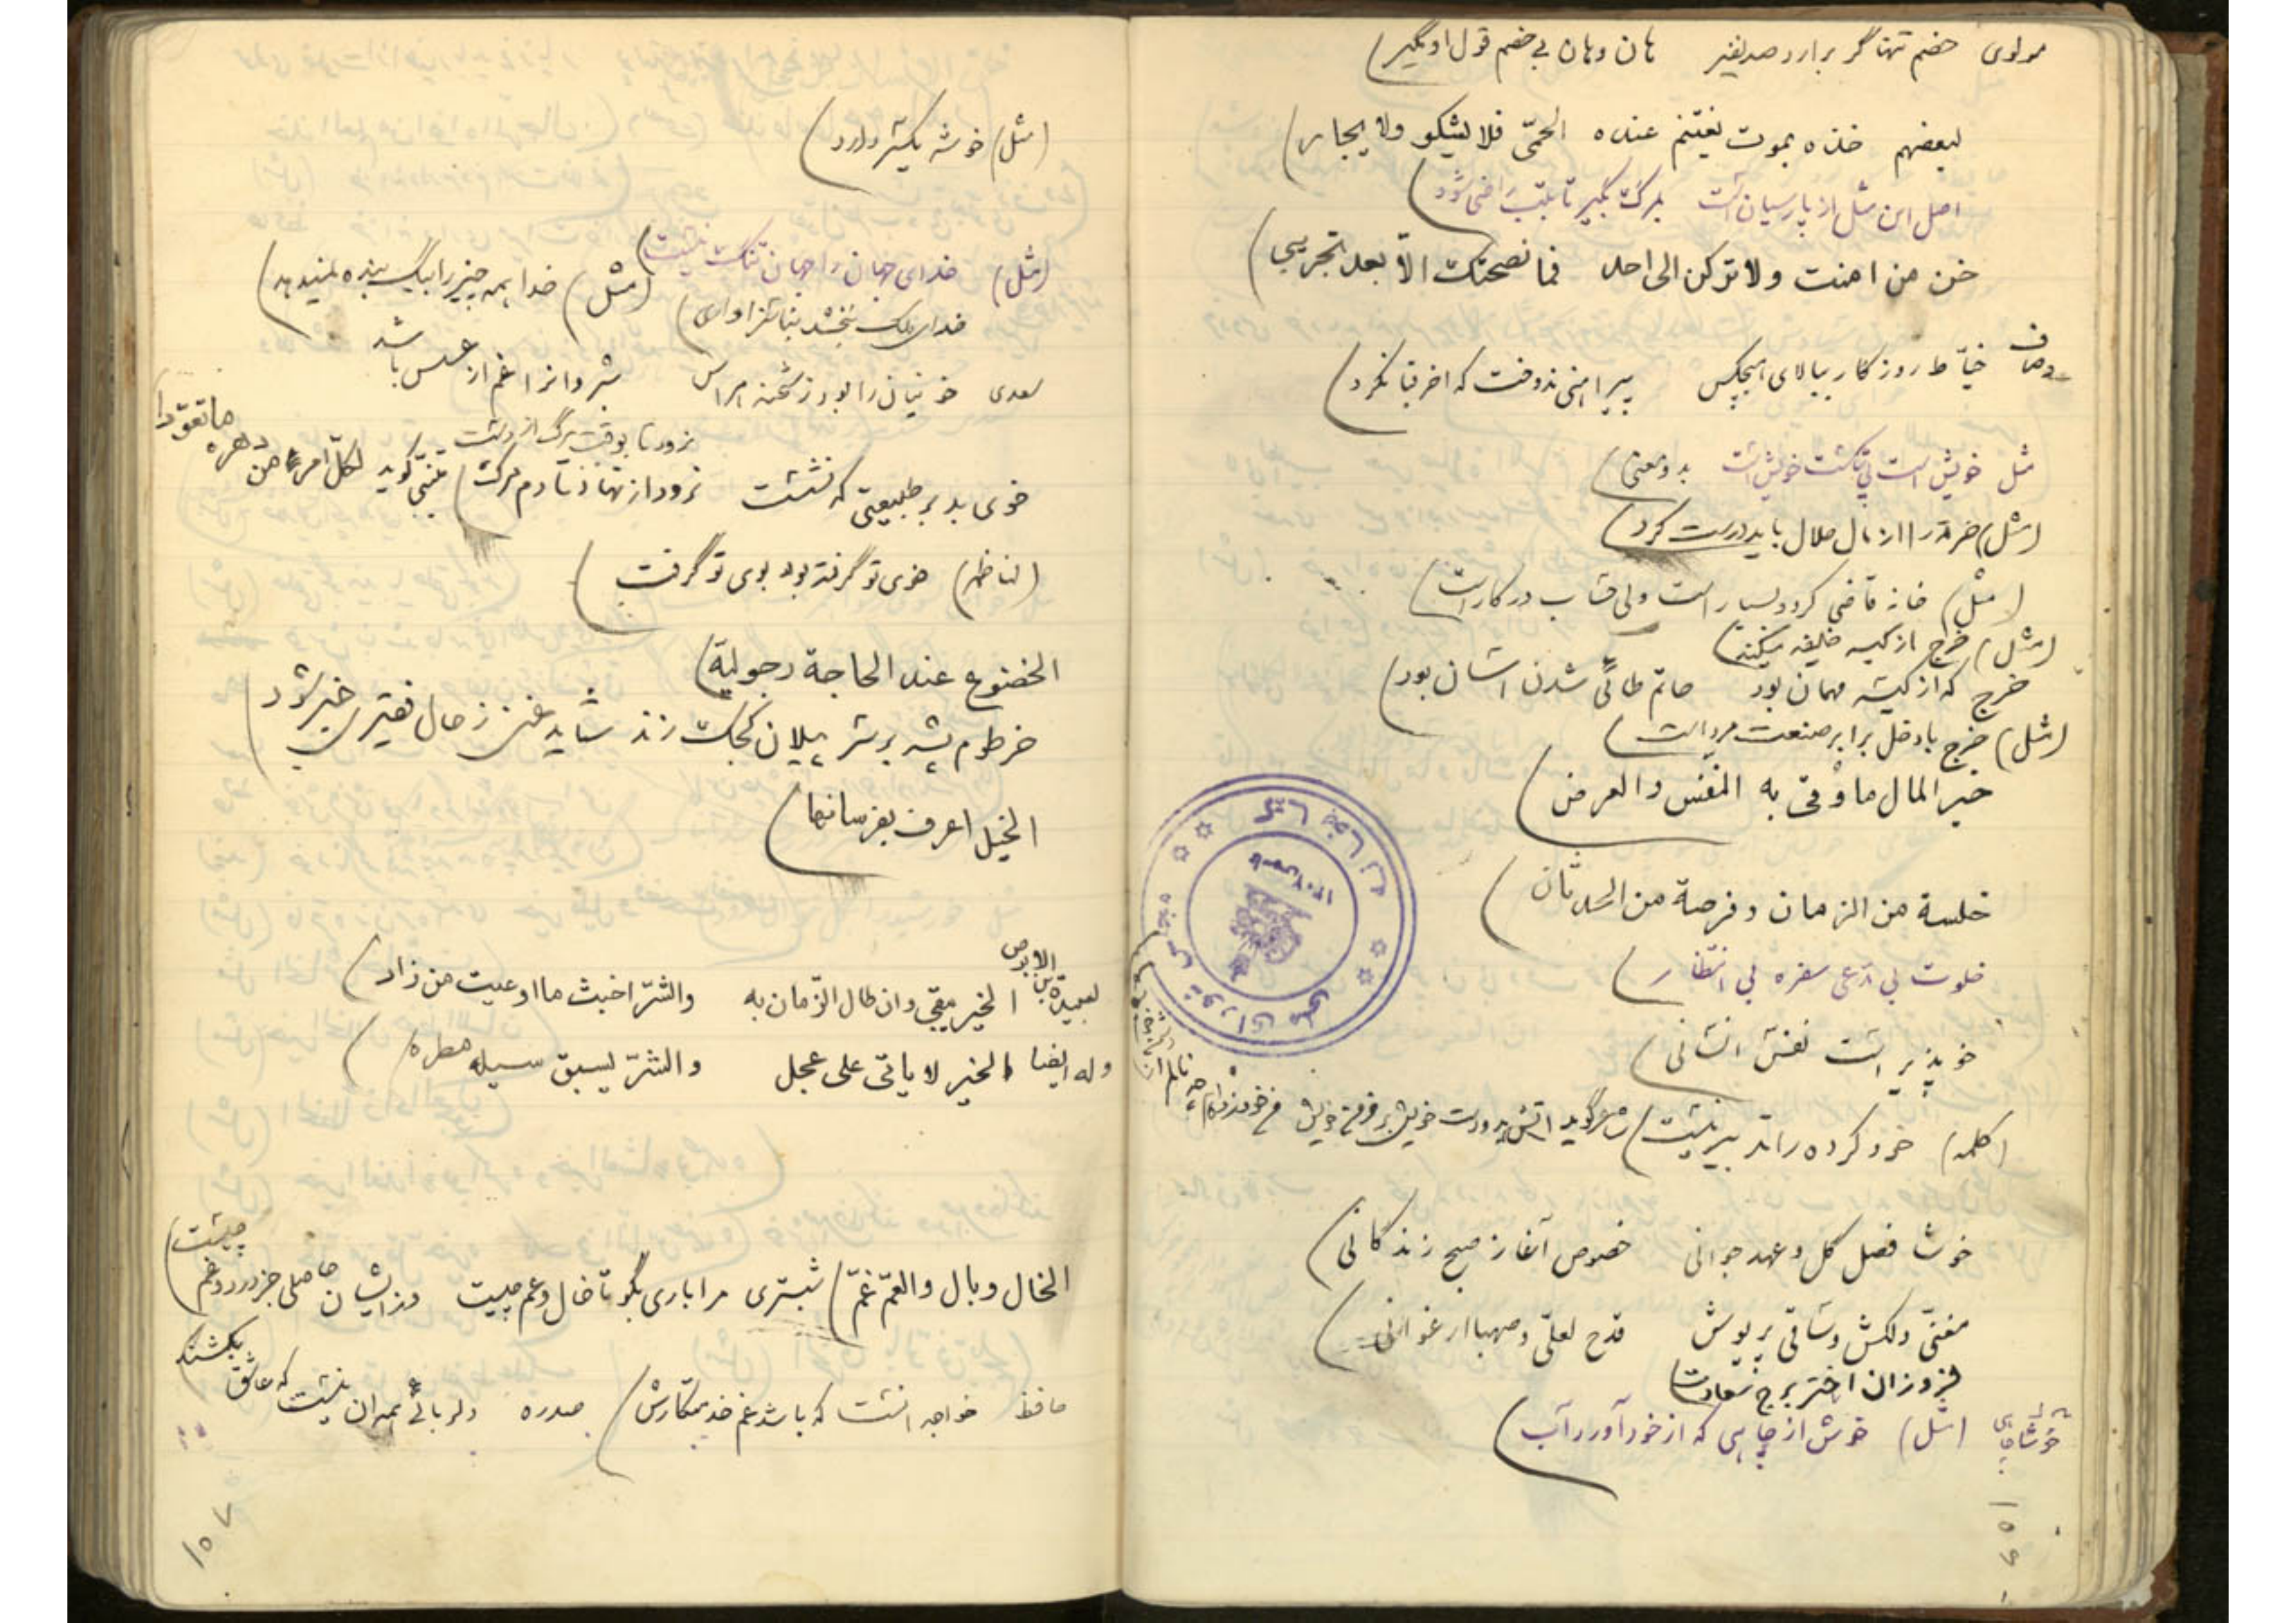 مولوی خصم تنها گر برارد صد نفیر هان و هان بی خصم قول او مگیر)
لبعضهم خذه بموت یغتنم عنده الحمّی فلا یشکو ولا یجار)
اصل این مثل از پارسیان است بمرگ بگیر تا بتب راضی شود)
خف من امنت ولا ترکن الی احد فما نصحتک الّا بعد تجریبی)
وصاف خیّاط روزگار ببالای هیچکس پیراهنی ندوخت که اخر قبا نکرد)
مثل خویش است بی تکت خویش است بدو معنی)
(مثل) خرقه را از مال حلال باید درست کرد)
(مثل) خانه قاضی گردو بسیار است ولی حساب در کار است)
(مثل) خرج از کیسه خلیفه میکند)
خرج که از کیسه مهمان بود حاتم طائی شدن اسان بود)
(مثل) خرج با دخل برابر صنعت مرد است)
خیر المال ما وقی به النفس والعرض)
خلسة من الزمان وفرصة من الحدثان)
خلوت بی مدعی سفره بی انتظار)
خوپذیر است نفس انسانی)
(کلمه) خود کرده را تدبیر نیست) شاعر گوید اتش بدو دست خویش بر خرمن خویش من خود زده ام چه نالم از دشمن خویش)
خوشا فصل گل و عهد جوانی خصوص آغاز صبح زندگانی)
مغنّی دلکش و ساقی پریوش قدح لعلّی و صهبا ارغوانی)
فروزان اختر برج سعادت)
(مثل) خوش از چاهی که از خود آورد آب)
خوشا چاهی
۱۵۶
کتابخانه مجلس شورای ملی
(مثل) خوشه یکسر دارد)
(مثل) خدای جهان را جهان تنگ نیست)
(مثل) خدا همه چیز را بیک بنده نمیدهد)
سعدی خونیان را بود ز شحنه هراس شبروانرا غم از عسس باشد
خوی بد بر طبیعتی که نشست نرود تا بوقت مرگ از دست
نرود از نهاد تا دم مرگ) متنبّی گوید لکلّ امرء من دهره ما تعوّدا)
(لناظم) خوی تو گرفته بود بوی تو گرفت)
الخضوع عند الحاجة رجولیة)
خرطوم پشه بر سر پیلان کجک زند شاید غنی ز حال فقیری خبر شود)
الخیل اعرف بفرسانها)
لعبید بن الابرص الخیر یبقی وان طال الزّمان به والشرّ اخبث ما اوعیت من زاد)
وله ایضا الخیر لا یاتی علی عجل والشرّ یسبق سیله مطره)
الخال وبال والعمّ غمّ) شبستری مرا باری بگو تا خال و عم چیست وز ایشان حاصلی جز درد و غم چیست)
حافظ خواجه انست که باشد غم خدمتکارش) صدره دلربائی همه ان نیست که عاشق بکشند
۱۵۷